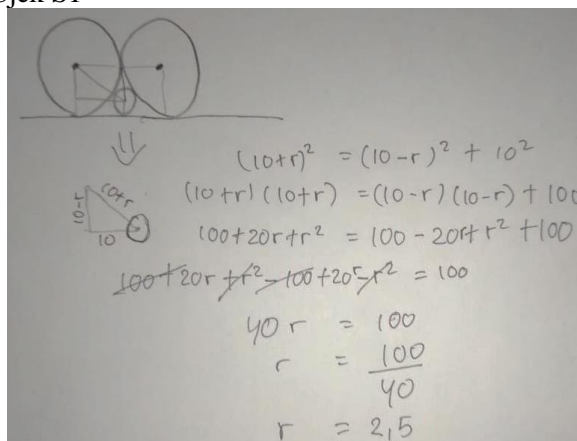 ojek S1
(10+r)² = (10-r)² + 10²
10+r
10-r
10
(10+r)(10+r) = (10-r)(10-r) + 100
100+20r+r² = 100-20r+r²+100
100+20r+r²-100+20r-r² = 100
40r = 100
r = 100/40
r = 2,5